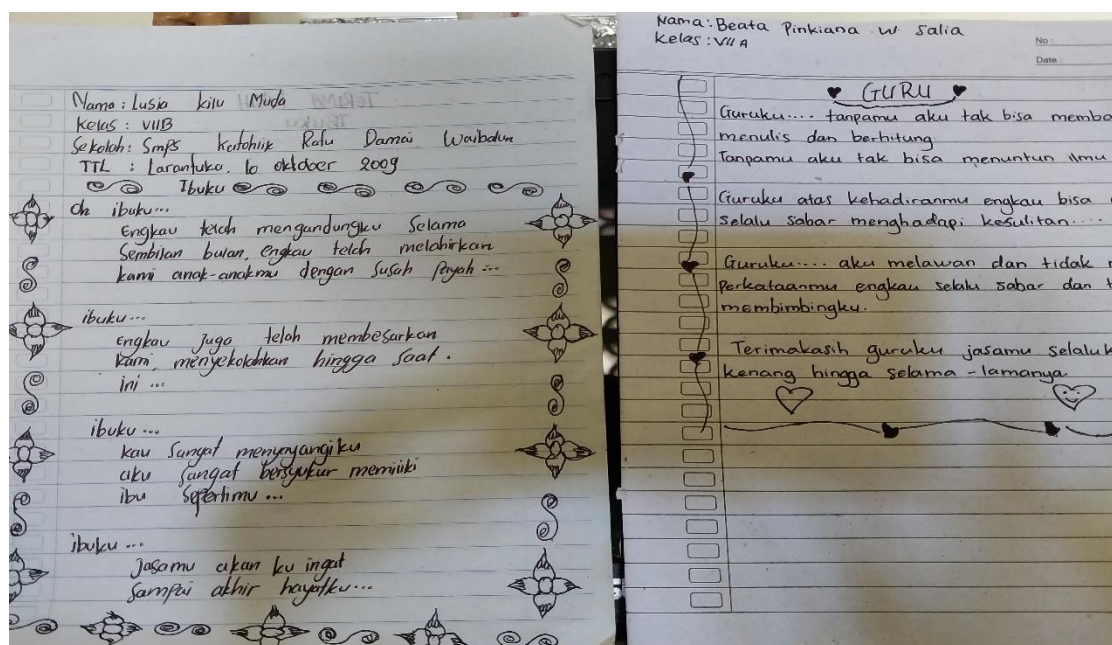 Nama : Lusia kilu Muda
Kelas : VIIB
Sekolah : Smps Katholik Ratu Damai Waibalun
TTL : Larantuka, 10 oktober 2009
Ibuku
Oh ibuku...
Engkau telah mengandungku Selama
Sembilan bulan, Engkau telah melahirkan
kami anak-anakmu dengan Susah Payah ...
ibuku ...
Engkau Juga telah membesarkan
kami, menyekolahkan hingga Saat.
ini ...
ibuku ...
kau Sangat menyayangiku
aku Sangat bersyukur memiliki
ibu Sepertimu ...
ibuku ...
Jasamu akan ku ingat
Sampai akhir hayatku...
Nama : Beata Pinkiana .W. Salia
Kelas : VII A
No :
Date :
GURU
Guruku.... tanpamu aku tak bisa
menulis dan berhitung
Tanpamu aku tak bisa menuntun ilmu
Guruku atas kehadiranmu engkau bisa
selalu sabar menghadapi kesulitan....
Guruku.... aku melawan dan tidak
Perkataanmu engkau selalu sabar dan
membimbingku.
Terimakasih guruku jasamu
kenang hingga selama-lamanya